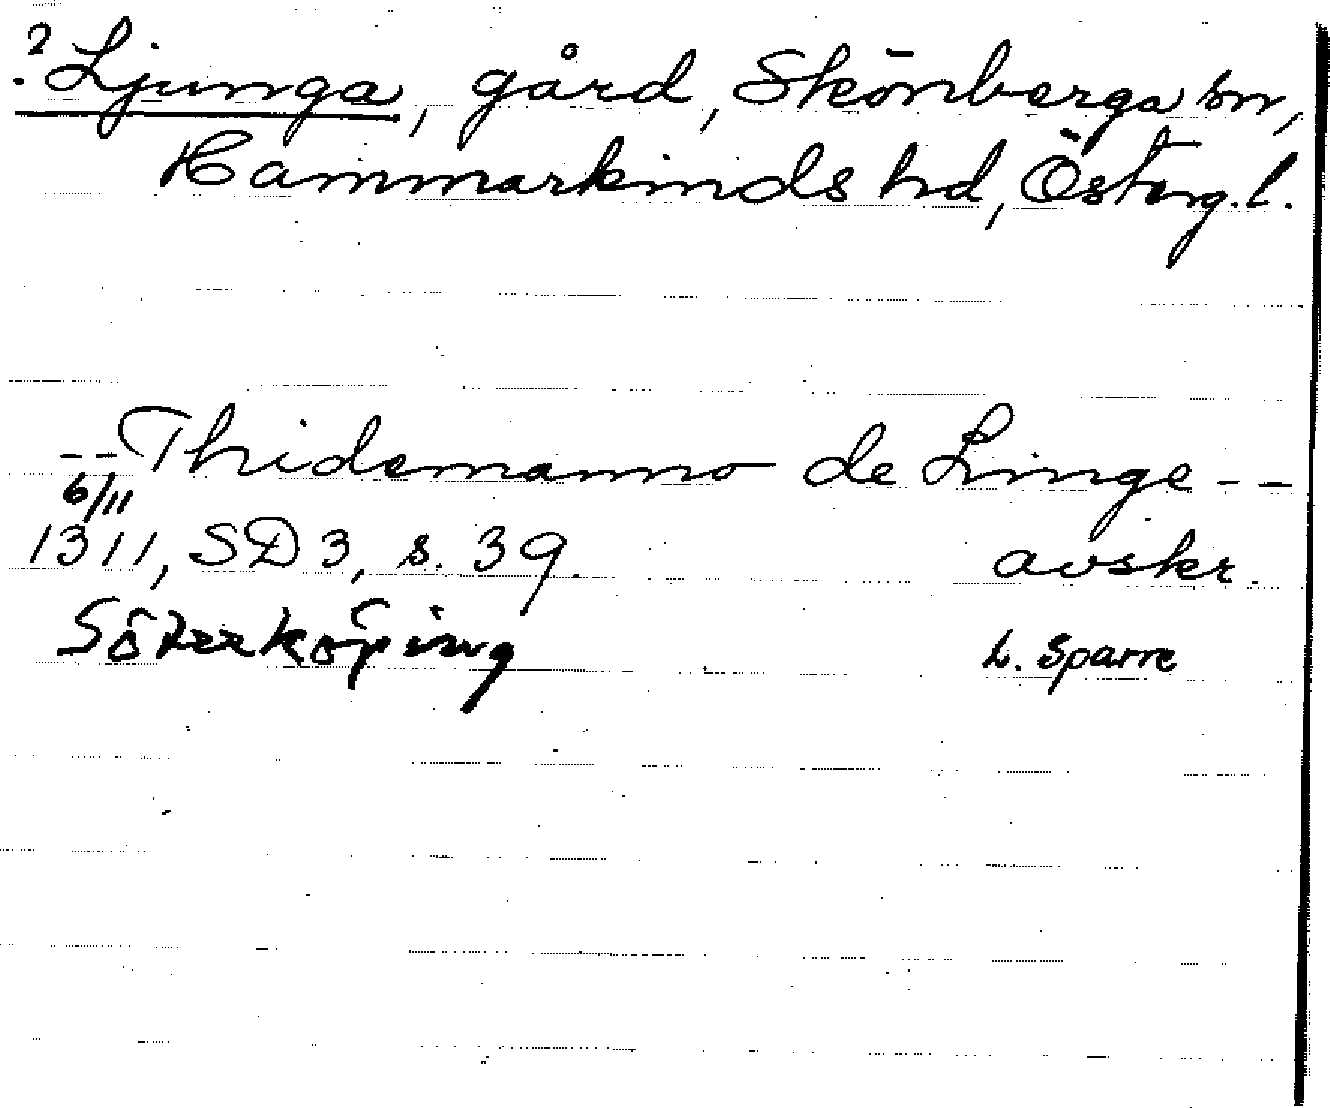 ? Ljunga, gård, Skönberga sn,
Hammarkinds hd, Österg.l.
-- Thidemanno de Linge --
6/11
1311, SD 3, s. 39. avskr.
Söderköping L. Sparre